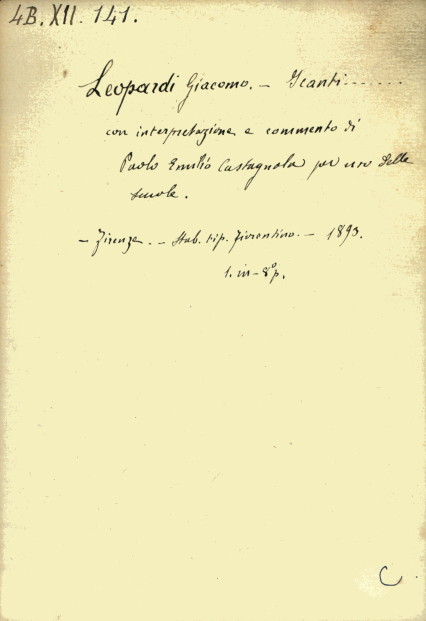 4B.XII.141.
Leopardi Giacomo. — I canti........
con interpretazione e commento di
Paolo Emilio Castagnola per uso delle
scuole.
— Firenze. — Stab. tip. Fiorentino. — 1893.
1. in-8º p.
C